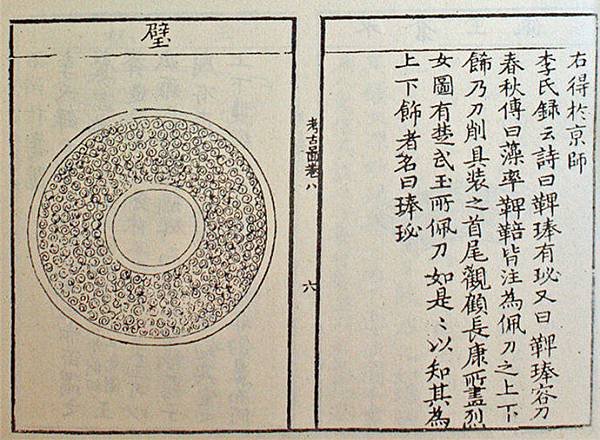 右得扵京師
李氏録云詩曰鞞琫有珌又曰鞞琫容刀
春秋傳曰藻率鞞鞛皆注為佩刀之上下
飾乃刀削具装之首尾觀顧長康所畫列
女圖有楚武王所佩刀如是〻以知其為
上下飾者名曰琫珌
考古啚卷八
六
璧